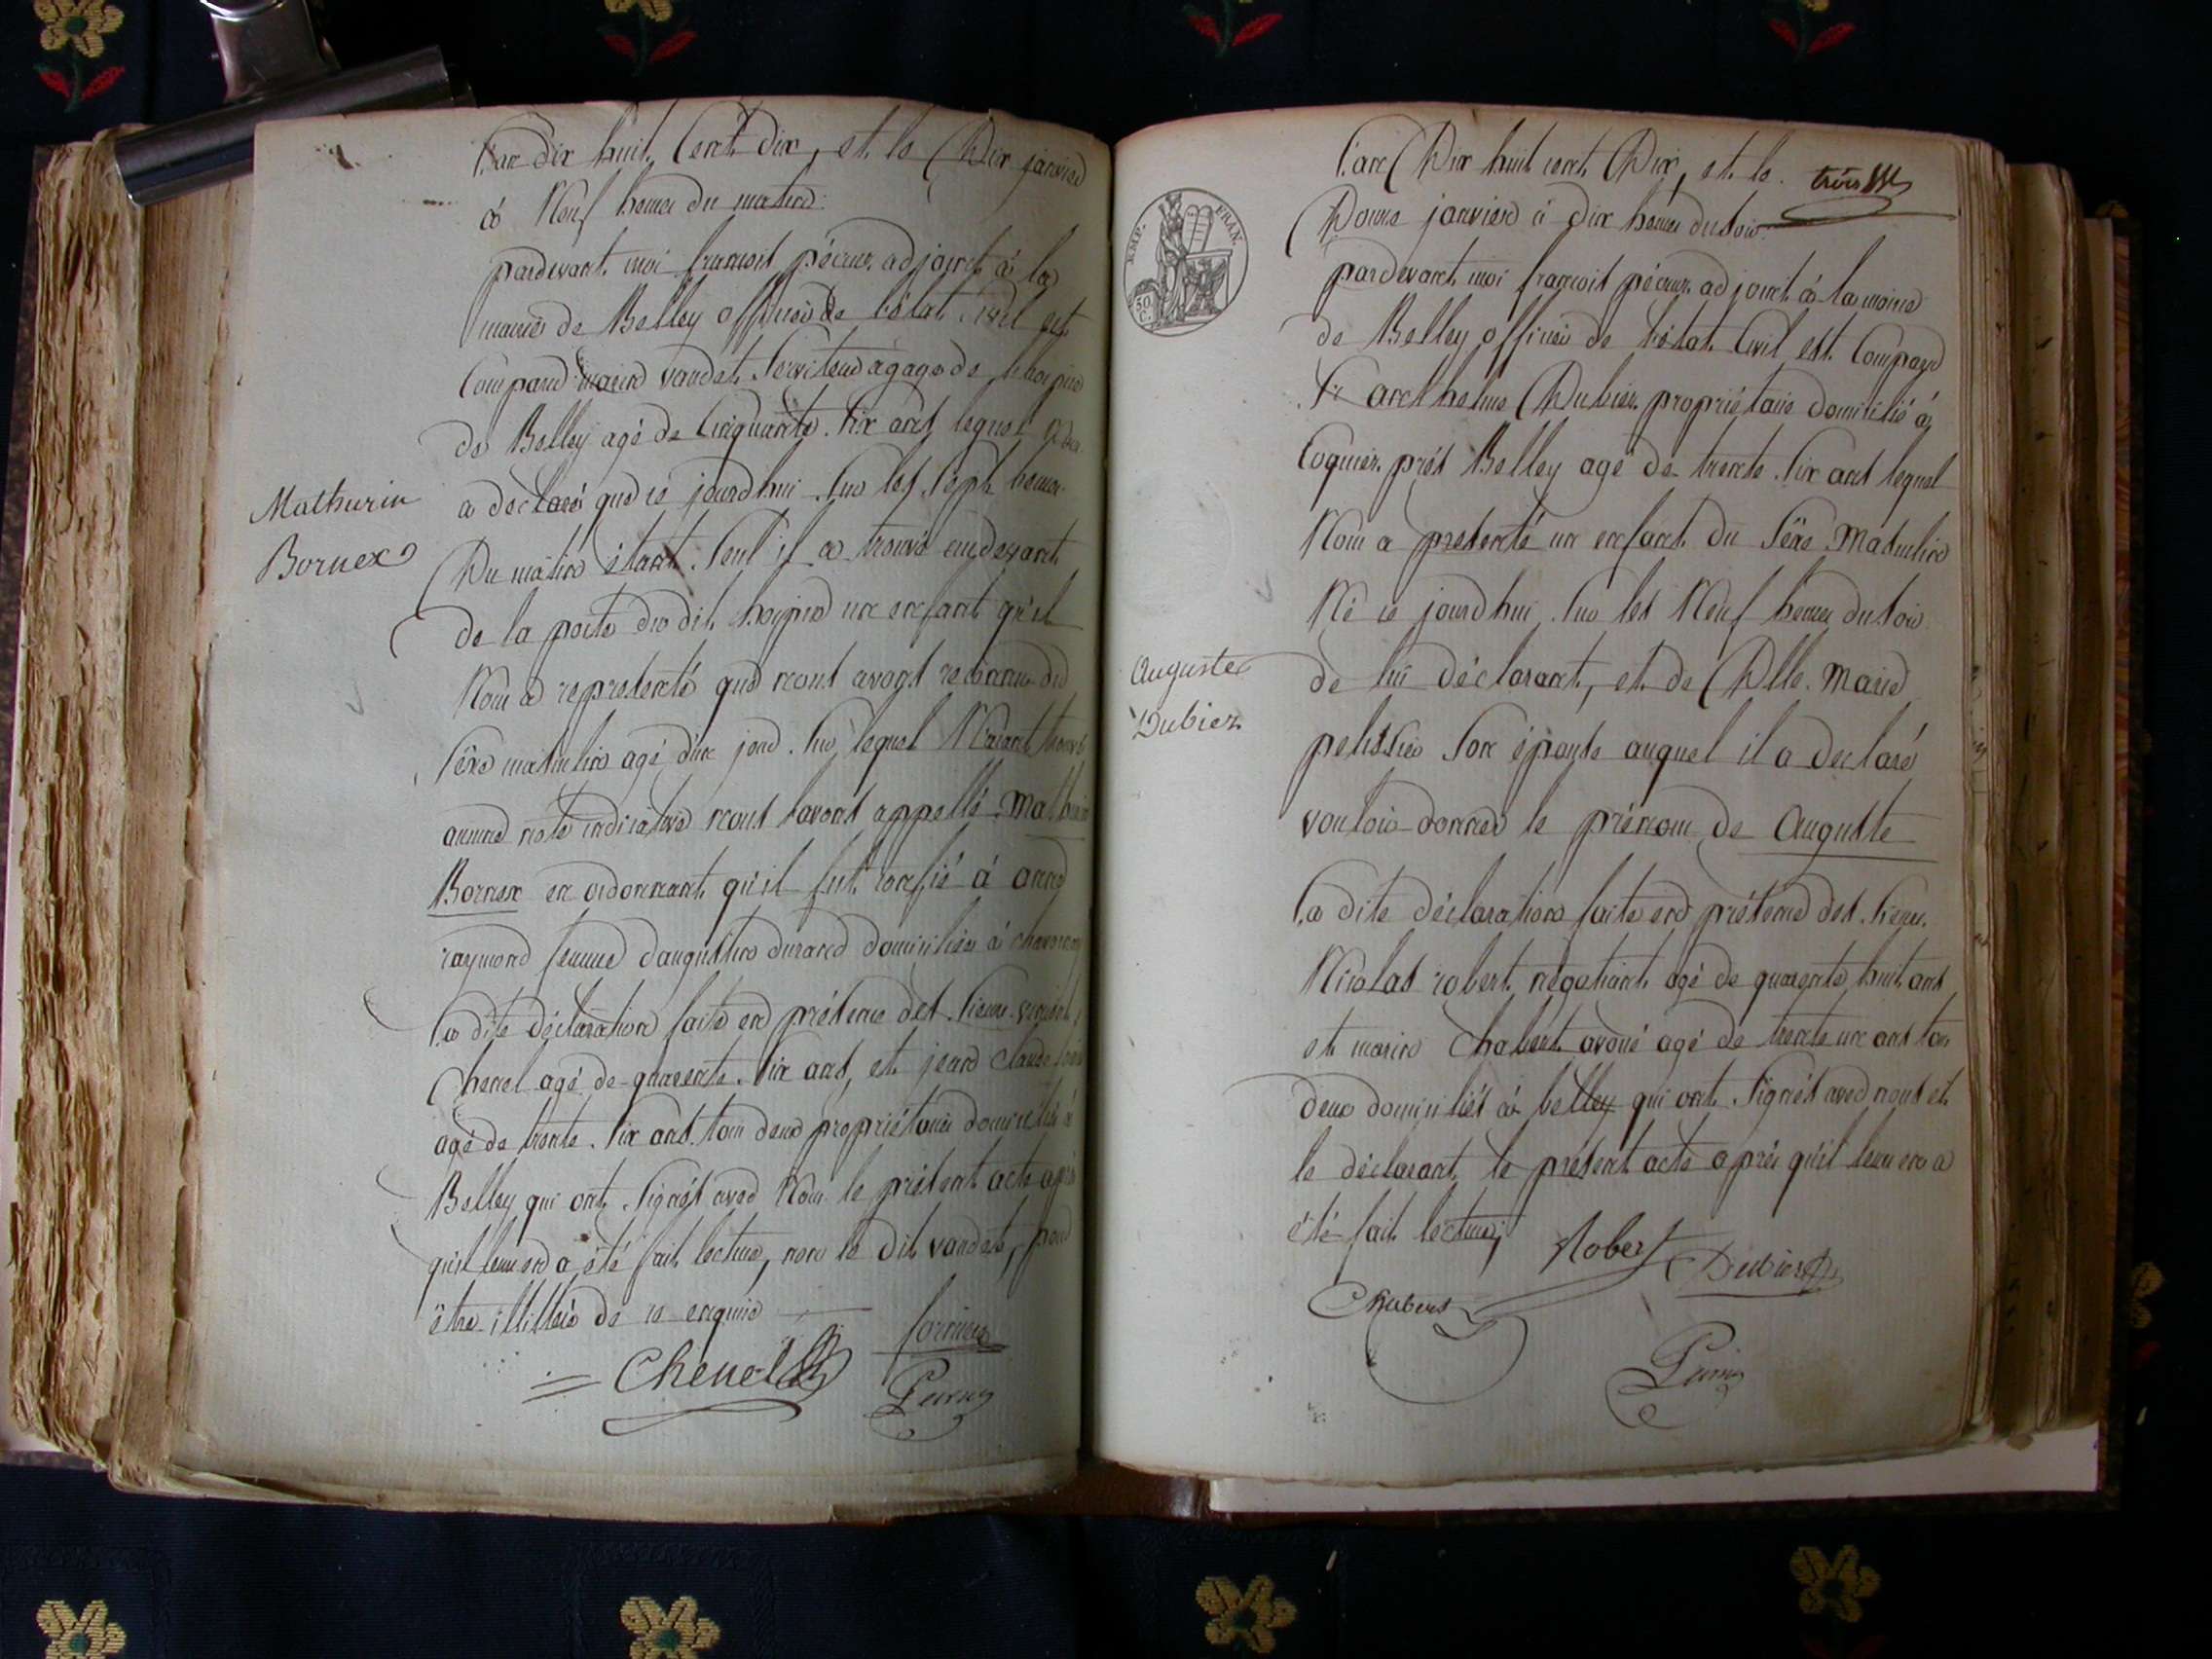 L'an dix huit Cent dix, et le Dix janvier
à Neuf heures du matin
pardevant moi francois pécuz adjoint à la
mairie de Belley officier de l'état Civil est
Comparu marin vaudet Serviteur à gage de l'hospice
de Belley agé de Cinquante Six ans lequel Nous
a déclaré que ce jourd'hui Sur les Sept heures
Du matin étant Seul il a trouvé au devant
de la porte du dit hospice un enfant qu'il
Nous a représenté que nous avons reconnu du
Sexe masculin agé d'un jour Sur lequel N'aiant trouvé
aucune note indicative nous l'avons appellé Mathurin
Bornex en ordonnant qu'il fut confié à anne
raymond femme d'augustin durand domiciliée à
La dite déclaration faite en présence des Sieurs
Chenel agé de quarante Six ans, et jean Claude
agé de trente Six ans tous deux propriétaires domiciliés à
Belley qui ont Signés avec Nous le présent acte après
qu'il leur en a été fait lecture, non le dit vaudet, pour
être illitteré de ce enquis
Mathurin
Bornex
Chenel
L'an Dix huit cent Dix, et le
trois
Douze janvier à dix heures du Soir
EMP. FRAN.
50 C.
pardevant moi francois pécuz adjoint à la mairie
de Belley officier de l'état Civil est Comparu
Sr anthelme Dubiez propriétaire domicilié à
Coquier près Belley agé de trente Six ans lequel
Nous a présenté un enfant du Sexe Masculin
Né ce jourd'hui Sur les Neuf heures du Soir
de lui déclarant, et de Dlle Marie
pelissier Son épouse auquel il a déclaré
vouloir donner le prénom de Auguste
La dite déclaration faite en présence des Sieurs
Nicolas robert négotiant agé de quarente huit ans
et marin Chabert avoué agé de trente un ans tous
deux domiciliés à belley qui ont Signés avec nous et
le déclarant le présent acte après qu'il leur en a
été fait lecture,
Auguste
Dubiez
Robert
Dubiez
Chabert